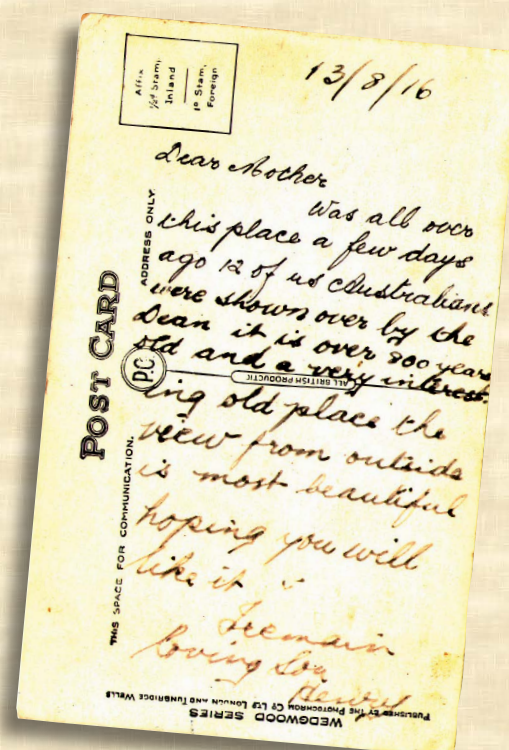 Affix
½d Stamp
Inland
1d Stam.
Foreign
13/8/16
Dear Mother
Was all over
this place a few days
ago 12 of us Australians
were shown over by the
Dean it is over 800 years
old and a very interest-
ing old place the
view from outside
is most beautiful
hoping you will
like it
I remain
loving Son
POST CARD
P.C
ADDRESS ONLY.
THIS SPACE FOR COMMUNICATION.
ALL BRITISH PRODUCTIO
WEDGWOOD SERIES
PUBLISHED BY THE PHOTOCHROM CO LTD LONDON AND TUNBRIDGE WELLS